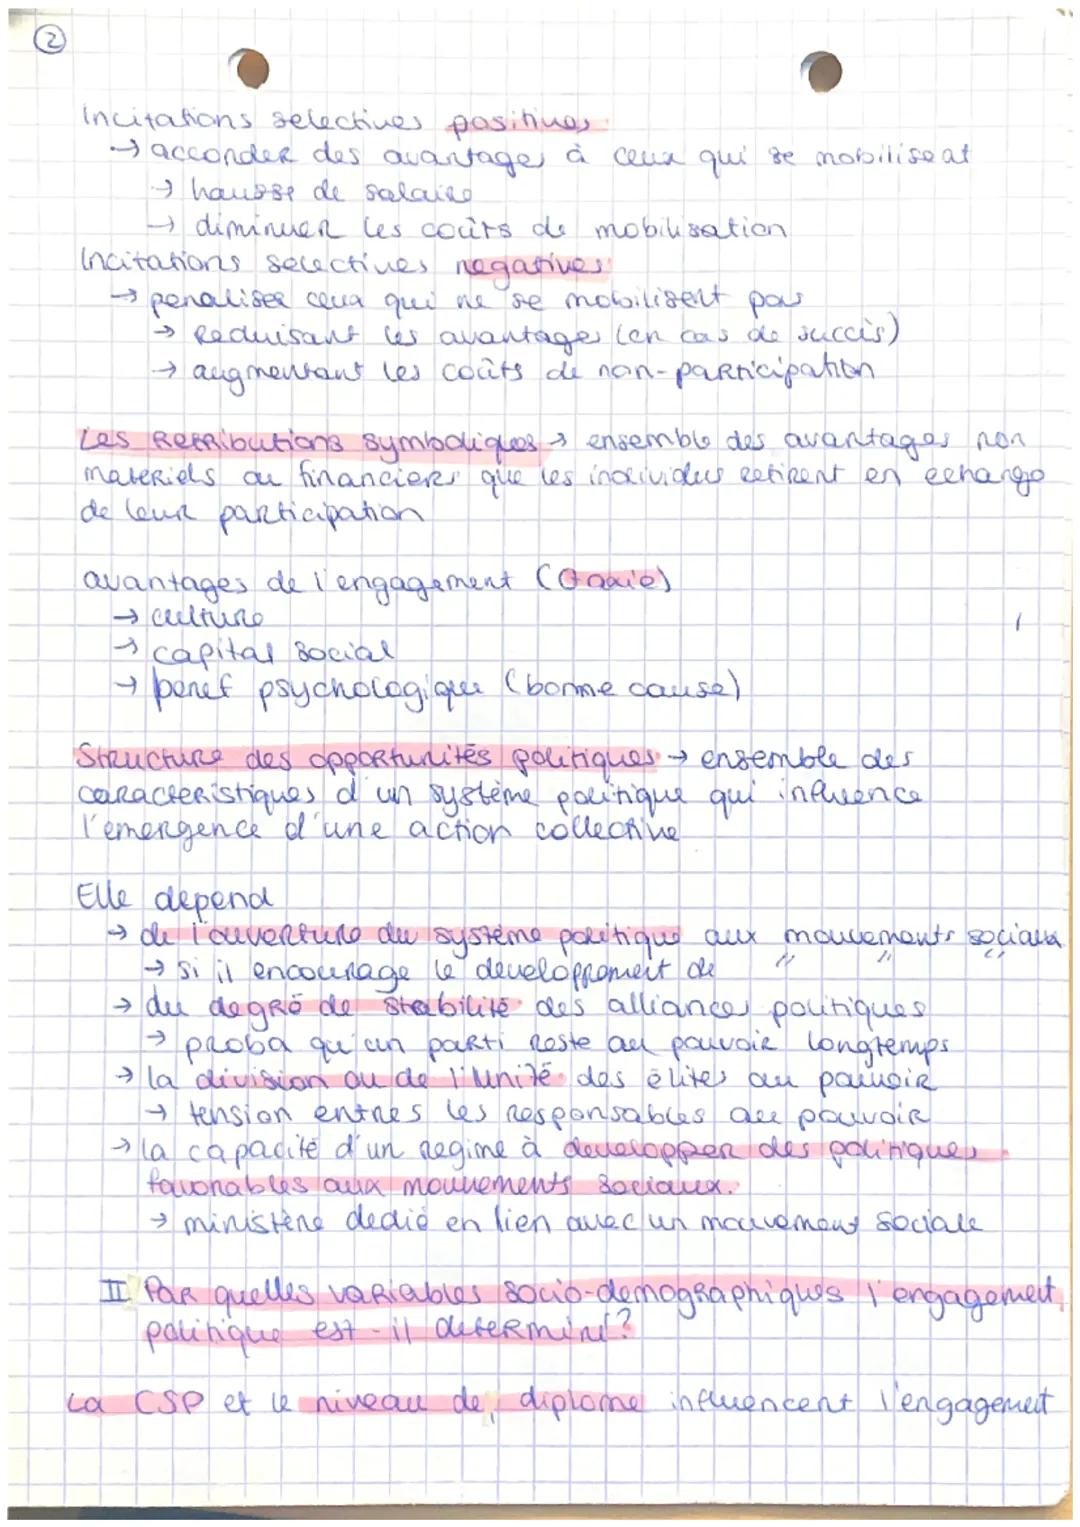 2
Incitations selectives positives:
→ accorder des avantages à ceux qui se mobilisent
→ hausse de salaire
→ diminuer les coûts de mobilisation
Incitations selectives negatives:
→ penaliser ceux qui ne se mobilisent pas
→ Reduisant les avantages (en cas de succès)
→ augmentant les coûts de non-participation
Les Retributions symboliques → ensemble des avantages non
materiels ou financiers que les individus retirent en echange
de leur participation
avantages de l'engagement (Gaxie)
→ culture
→ capital social
→ benef psychologique (bonne cause)
Structure des opportunités politiques → ensemble des
caracteristiques d'un système politique qui influence
l'emergence d'une action collective
Elle depend
→ de l'ouverture du système politique aux mouvements sociaux
→ si il encourage le developpement de " " "
→ du degré de stabilité des alliances politiques
→ proba qu'un parti reste au pouvoir longtemps
→ la division ou de l'unité des élites au pouvoir
→ tension entres les responsables au pouvoir
→ la capacité d'un regime à developper des politiques
favorables aux mouvements sociaux.
→ ministère dedié en lien avec un mouvement sociale
II Par quelles variables socio-demographiques l'engagement
politique est-il determiné?
La CSP et le niveau de diplome influencent l'engagement